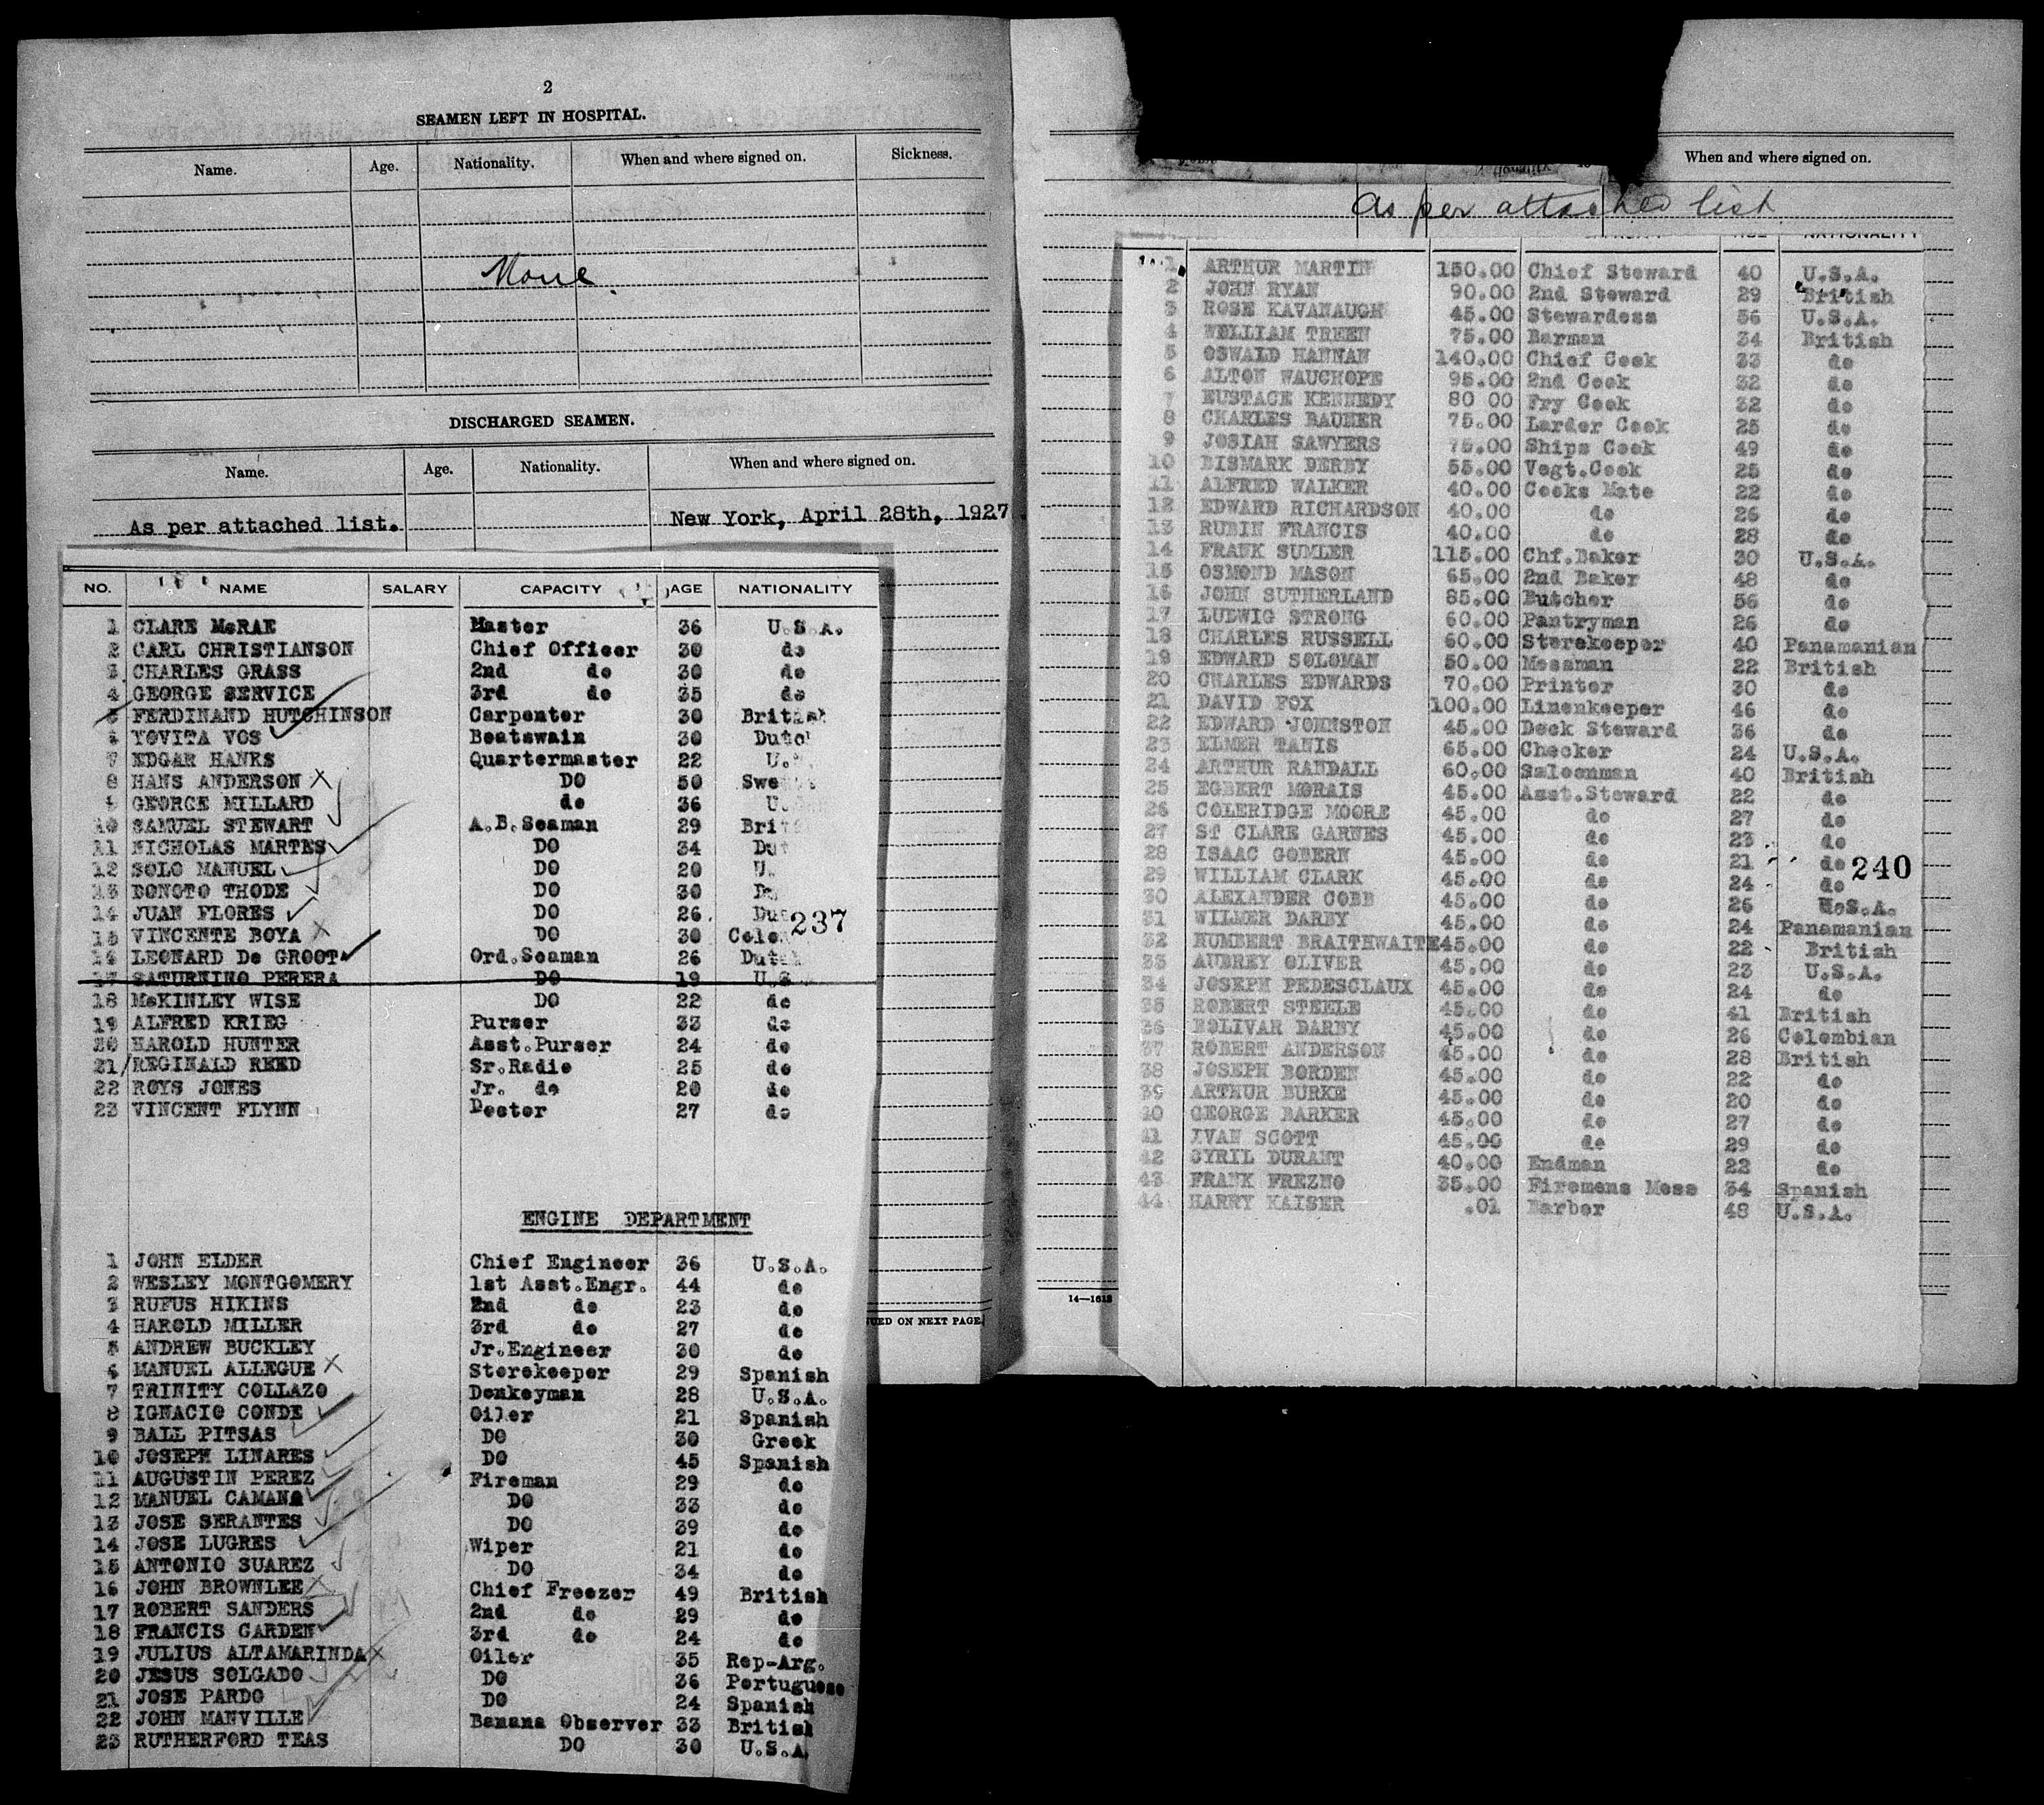 2
SEAMEN LEFT IN HOSPITAL.
Name. Age. Nationality. When and where signed on. Sickness.
None.
DISCHARGED SEAMEN.
Name. Age. Nationality. When and where signed on.
As per attached list. New York, April 28th, 1927
NO. NAME SALARY CAPACITY AGE NATIONALITY
1 CLARE McRAE Master 36 U.S.A.
2 CARL CHRISTIANSON Chief Officer 30 do
3 CHARLES GRASS 2nd do 30 do
4 GEORGE SERVICE 3rd do 35 do
5 FERDINAND HUTCHINSON Carpenter 30 British
6 YOVITA VOS Boatswain 30 Dutch
7 EDGAR HANKS Quartermaster 22 U.
8 HANS ANDERSON DO 50 Swe
9 GEORGE MILLARD do 36 U.
10 SAMUEL STEWART A.B.Seaman 29 Brit
11 NICHOLAS MARTES DO 34 Dut
12 SOLO MANUEL DO 20 U.
13 DONOTO THODE DO 30 Du
14 JUAN FLORES DO 26 Dut
237
15 VINCENTE BOYA DO 30 Colo
16 LEONARD De GROOT Ord.Seaman 26 Dutch
17 SATURNINO PERERA DO 19 U.S
18 McKINLEY WISE DO 22 do
19 ALFRED KRIEG Purser 33 do
20 HAROLD HUNTER Asst.Purser 24 do
21 REGINALD REED Sr.Radio 25 do
22 ROYS JONES Jr. do 20 do
23 VINCENT FLYNN Doctor 27 do
ENGINE DEPARTMENT
1 JOHN ELDER Chief Engineer 36 U.S.A.
2 WESLEY MONTGOMERY 1st Asst.Engr. 44 do
3 RUFUS HIKINS 2nd do 23 do
4 HAROLD MILLER 3rd do 27 do
5 ANDREW BUCKLEY Jr.Engineer 30 do
6 MANUEL ALLEGUE Storekeeper 29 Spanish
7 TRINITY COLLAZO Donkeyman 28 U.S.A.
8 IGNACIO CONDE Oiler 21 Spanish
9 BALL PITSAS DO 30 Greek
10 JOSEPH LINARES DO 45 Spanish
11 AUGUSTIN PEREZ Fireman 29 do
12 MANUEL CAMANO DO 33 do
13 JOSE SERANTES DO 39 do
14 JOSE LUGRES Wiper 21 do
15 ANTONIO SUAREZ DO 34 do
16 JOHN BROWNLEE Chief Freezer 49 British
17 ROBERT SANDERS 2nd do 29 do
18 FRANCIS CARDEN 3rd do 24 do
19 JULIUS ALTAMARINDA Oiler 35 Rep-Arg.
20 JESUS SOLGADO DO 36 Portuguese
21 JOSE PARDO DO 24 Spanish
22 JOHN MANVILLE Banana Observer 33 British
23 RUTHERFORD TEAS DO 30 U.S.A
UED ON NEXT PAGE.
When and where signed on.
As per attached list
NATIONALITY
1 ARTHUR MARTIN 150.00 Chief Steward 40 U.S.A.
2 JOHN RYAN 90.00 2nd Steward 29 British
3 ROSE KAVANAUGH 45.00 Stewardess 56 U.S.A.
4 WELLIAM TREEN 75.00 Barman 34 British
5 OSWALD HANNAN 140.00 Chief Cook 33 do
6 ALTON WAUCHOPE 95.00 2nd Cook 32 do
7 EUSTACE KENNEDY 80 00 Fry Cook 32 do
8 CHARLES BAUHER 75.00 Larder Cook 25 do
9 JOSIAH SAWYERS 75.00 Ships Cook 49 do
10 BISMARK DERBY 55.00 Vegt.Cook 25 do
11 ALFRED WALKER 40.00 Cooks Mate 22 do
12 EDWARD RICHARDSON 40.00 do 26 do
13 RUBIN FRANCIS 40.00 do 28 do
14 FRANK SUMLER 115.00 Chf.Baker 30 U.S.A.
15 OSMOND MASON 65.00 2nd Baker 48 do
16 JOHN SUTHERLAND 85.00 Butcher 56 do
17 LUDWIG STRONG 60.00 Pantryman 26 do
18 CHARLES RUSSELL 60.00 Storekeeper 40 Panamanian
19 EDWARD SOLOMAN 50.00 Messman 22 British
20 CHARLES EDWARDS 70.00 Printer 30 do
21 DAVID FOX 100.00 Linenkeeper 46 do
22 EDWARD JOHNSTON 45.00 Deck Steward 36 do
23 ELMER TANIS 65.00 Checker 24 U.S.A.
24 ARTHUR RANDALL 60.00 Saloonman 40 British
25 EGBERT MORAIS 45.00 Asst.Steward 22 do
26 COLERIDGE MOORE 45.00 do 27 do
27 ST CLARE GARNES 45.00 do 23 do
28 ISAAC GOBERN 45.00 do 21 do
240
29 WILLIAM CLARK 45.00 do 24 do
30 ALEXANDER COBB 45.00 do 26 U.S.A.
31 WILMER DARBY 45.00 do 24 Panamanian
32 HUMBERT BRAITHWAITE 45.00 do 22 British
33 AUBREY OLIVER 45.00 do 23 U.S.A.
34 JOSEPH PEDESCLAUX 45.00 do 24 do
35 ROBERT STEELE 45.00 do 41 British
36 BOLIVAR DARBY 45.00 do 26 Colombian
37 ROBERT ANDERSON 45.00 do 28 British
38 JOSEPH BORDEN 45.00 do 22 do
39 ARTHUR BURKE 45.00 do 20 do
40 GEORGE BARKER 45.00 do 27 do
41 IVAN SCOTT 45.00 do 29 do
42 CYRIL DURANT 40.00 Endman 22 do
43 FRANK FREZNO 35.00 Firemens Mess 34 Spanish
44 HARRY KAISER .01 Barber 48 U.S.A.
14—1613